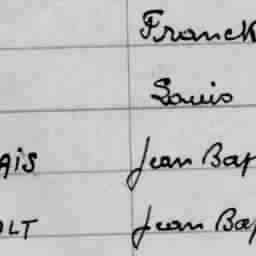 Franck
Louis
AIS Jean Bap
OLT Jean Bap